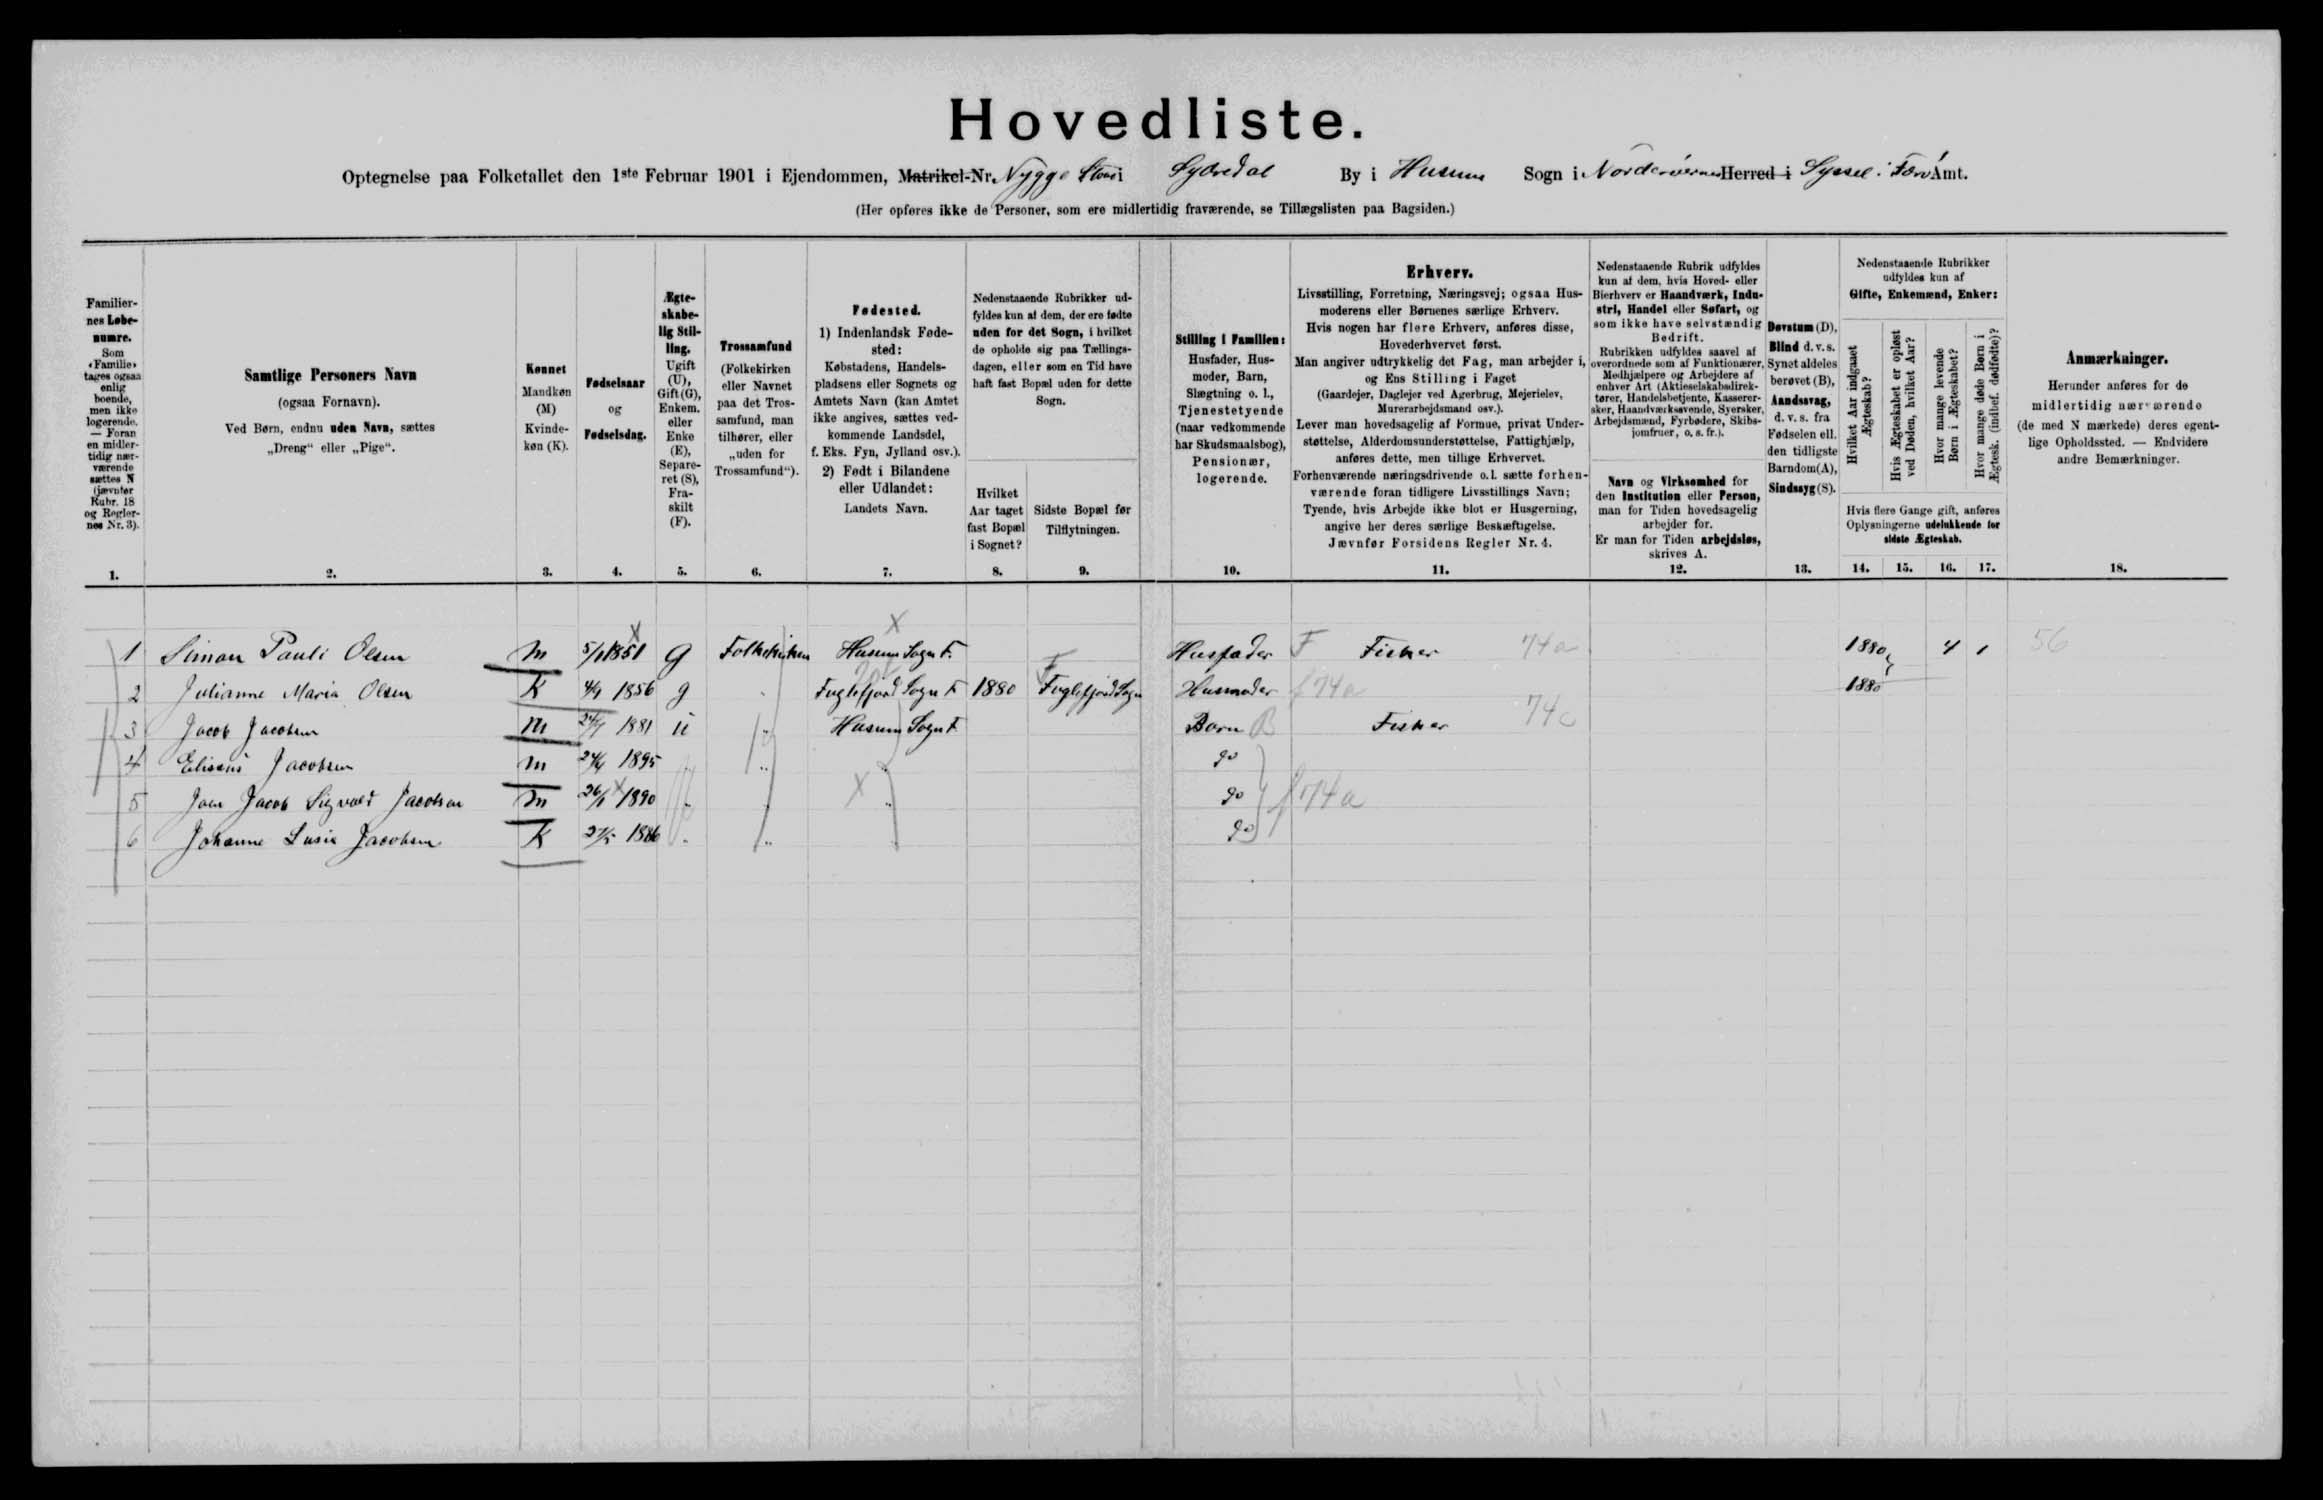 Hovedliste.
Optegnelse paa Folketallet den 1ste Februar 1901 i Ejendommen, Matrikel-Nr. Nygge Stue i Sydredal By i Husum Sogn i Norderøernes Herred i Syssel i Færø Amt.
(Her opføres ikke de Personer, som ere midlertidig fraværende, se Tillægslisten paa Bagsiden.)
Familiernes Løbenumre.
Som «Familie» tages ogsaa enlig boende, men ikke logerende. — Foran en midlertidig nærværende sættes N (jævnfør Rubr. 18 og Reglernes Nr. 3).
1.
Samtlige Personers Navn
(ogsaa Fornavn).
Ved Børn, endnu uden Navn, sættes
„Dreng“ eller „Pige“.
2.
Kønnet
Mandkøn (M)
Kvindekøn (K).
3.
Fødselsaar
og
Fødselsdag.
4.
Ægteskabelig Stilling.
Ugift (U), Gift (G), Enkem. eller Enke (E), Separeret (S), Fraskilt (F).
5.
Trossamfund
(Folkekirken eller Navnet paa det Trossamfund, man tilhører, eller „uden for Trossamfund“).
6.
Fødested.
1) Indenlandsk Fødested:
Købstadens, Handelspladsens eller Sognets og Amtets Navn (kan Amtet ikke angives, sættes vedkommende Landsdel, f. Eks. Fyn, Jylland osv.).
2) Født i Bilandene eller Udlandet:
Landets Navn.
7.
Nedenstaaende Rubrikker udfyldes kun af dem, der ere fødte uden for det Sogn, i hvilket de opholde sig paa Tællingsdagen, eller som en Tid have haft fast Bopæl uden for dette Sogn.
Hvilket Aar taget fast Bopæl i Sognet?
8.
Sidste Bopæl før Tilflytningen.
9.
Stilling i Familien:
Husfader, Husmoder, Barn, Slægtning o. l., Tjenestetyende (naar vedkommende har Skudsmaalsbog), Pensionær, logerende.
10.
Erhverv.
Livsstilling, Forretning, Næringsvej; ogsaa Husmoderens eller Børnenes særlige Erhverv.
Hvis nogen har flere Erhverv, anføres disse, Hovederhvervet først.
Man angiver udtrykkelig det Fag, man arbejder i, og Ens Stilling i Faget
(Gaardejer, Daglejer ved Agerbrug, Mejerielev, Murerarbejdsmand osv.).
Lever man hovedsagelig af Formue, privat Understøttelse, Alderdomsunderstøttelse, Fattighjælp, anføres dette, men tillige Erhvervet.
Forhenværende næringsdrivende o. l. sætte forhenværende foran tidligere Livsstillings Navn;
Tyende, hvis Arbejde ikke blot er Husgerning, angive her deres særlige Beskæftigelse.
Jævnfør Forsidens Regler Nr. 4.
11.
Nedenstaaende Rubrik udfyldes kun af dem, hvis Hoved- eller Bierhverv er Haandværk, Industri, Handel eller Søfart, og som ikke have selvstændig Bedrift.
Rubrikken udfyldes saavel af overordnede som af Funktionærer, Medhjælpere og Arbejdere af enhver Art (Aktieselskabsdirektører, Handelsbetjente, Kasserersker, Haandværkssvende, Syersker, Arbejdsmænd, Fyrbødere, Skibsjomfruer, o. s. fr.).
Navn og Virksomhed for den Institution eller Person, man for Tiden hovedsagelig arbejder for.
Er man for Tiden arbejdsløs, skrives A.
12.
Døvstum (D), Blind d. v. s. Synet aldeles berøvet (B), Aandssvag, d. v. s. fra Fødselen ell. den tidligste Barndom (A), Sindssyg (S).
13.
Nedenstaaende Rubrikker udfyldes kun af
Gifte, Enkemænd, Enker:
Hvilket Aar indgaaet Ægteskab?
Hvis Ægteskabet er opløst ved Døden, hvilket Aar?
Hvor mange levende Børn i Ægteskabet?
Hvor mange døde Børn i Ægtesk. (indbef. dødfødte)?
Hvis flere Gange gift, anføres Oplysningerne udelukkende for sidste Ægteskab.
14. 15. 16. 17.
Anmærkninger.
Herunder anføres for de midlertidig nærværende (de med N mærkede) deres egentlige Opholdssted. — Endvidere andre Bemærkninger.
18.
1 Simon Pauli Olsen M 5/1 1851 G Folkekirken Husum Sogn F. Husfader F Fisker 74a 1880 4 1 56
2 Julianne Maria Olsen K 4/9 1856 g " Fuglefjord Sogn F 1880 Fuglefjord Sogn Husmoder f 74a 1880
3 Jacob Jacobsen M 1881 U " Husum Sogn F Barn B Fisker 74c
4 Jacobsen M 24/4 1895 " " " do
5 Joen Jacob Sigvald Jacobsen M 26/1 1890 " " " do f 74a
6 Johanne Lusia Jacobsen K 27/5 1886 " " do